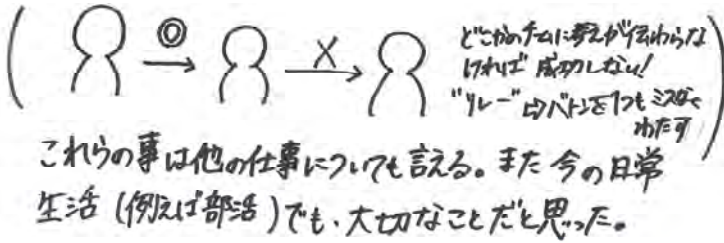 ◎
×
どこかのチームに考えが伝わらな
ければ成功しない!
"リレー"⇨バトンを1つもミスなく
わたす
これらの事は他の仕事についても言える。また今の日常
生活(例えば部活)でも、大切なことだと思った。